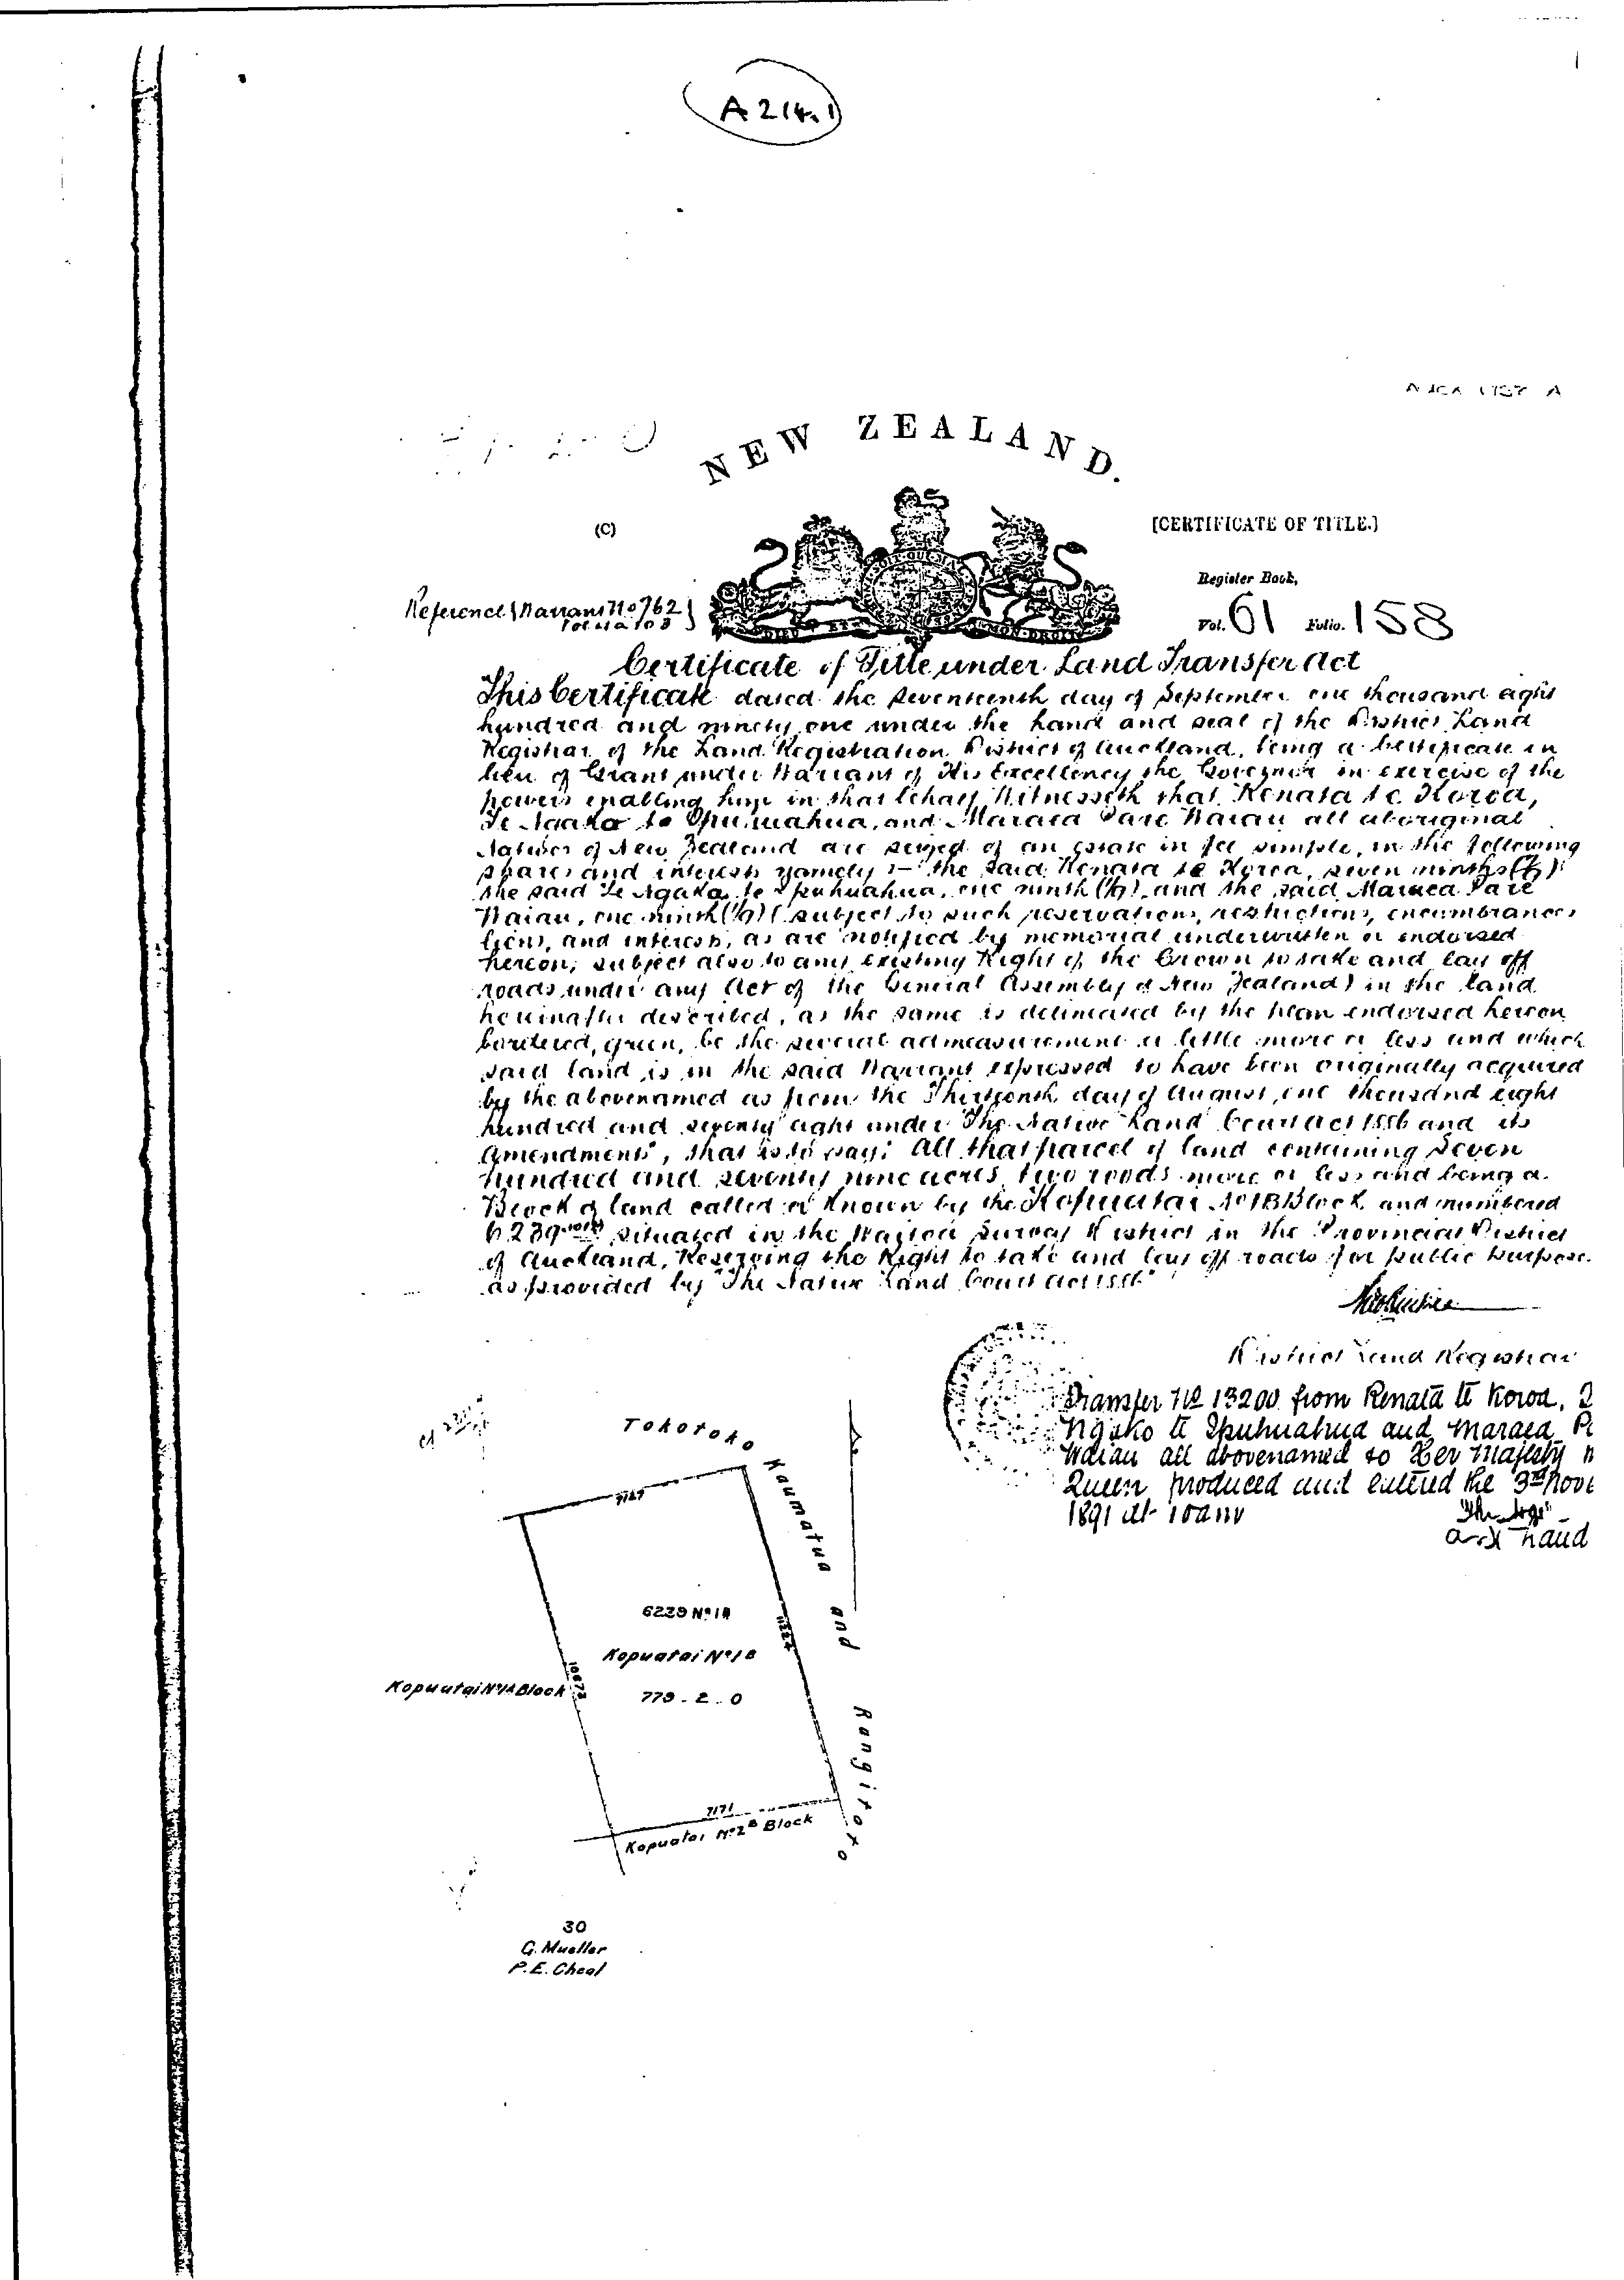 A214.1
NEW ZEALAND.
(C)
[CERTIFICATE OF TITLE.]
Register Book,
Reference Warrant No 762
Vol. 61 Folio. 158
Certificate of Title under Land Transfer Act
This Certificate dated the seventeenth day of September one thousand eight
hundred and ninety one under the hand and seal of the District Land
Registrar of the Land Registration District of Auckland, being a Certificate in
lieu of Grant under Warrant of His Excellency the Governor in exercise of the
powers enabling him in that behalf Witnesseth that Renata te Koroa,
Te Ngako te Ipuhuahua, and Maraea Pare Waiau all aboriginal
Natives of New Zealand are seized of an Estate in fee simple, in the following
shares and interests namely :— the said Renata te Koroa, seven ninths (7/9);
the said Te Ngako te Ipuhuahua, one ninth (1/9), and the said Maraea Pare
Waiau, one ninth (1/9) (subject to such reservations, restrictions, encumbrances
liens, and interests, as are notified by memorial underwritten or endorsed
hereon; subject also to any existing Right of the Crown to take and lay off
roads under any Act of the General Assembly of New Zealand) in the land
hereinafter described, as the same is delineated by the plan endorsed hereon
bordered, green, be the several admeasurement a little more or less and which
said land is in the said Warrant expressed to have been originally acquired
by the abovenamed as from the Thirteenth day of August, one thousand eight
hundred and seventy eight under "The Native Land Court Act 1886 and its
Amendments", that is to say: All that parcel of land containing Seven
hundred and seventy nine acres two roods more or less and being a
Block of land called or known by the Kopuatai No 1B Block and numbered
6239 situated in the Waitoa Survey District in the Provincial District
of Auckland, Reserving the Right to take and lay off roads for public purpose.
as provided by "The Native Land Court Act 1886"
District Land Registrar
Transfer No 13200 from Renata te Koroa,
Ngako te Ipuhuahua and Maraea
Waiau all abovenamed to Her Majesty
Queen produced and entered the 3rd Nove
1891 at 10 am
Tokotoko
Kaumatua and Rangitoto
7147
6239 No 1B
Kopuatai No 1B
Kopuatai No 1A Block
779 . 2 . 0
7171
Kopuatai No 2B Block
30
G. Mueller
P. E. Cheal